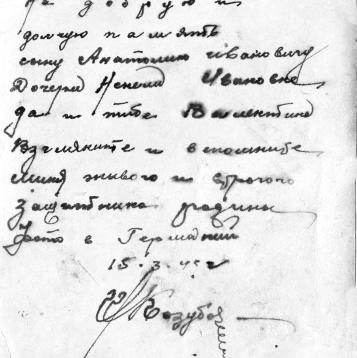 на добрую и
долгую память
сыну Анатолию Ивановичу
Дочери Ивановне
да и тибе Валентине
Взгляните и вспомните
миня живого и
защитника родины
Фото в Германии
15.3.45г
Козубо